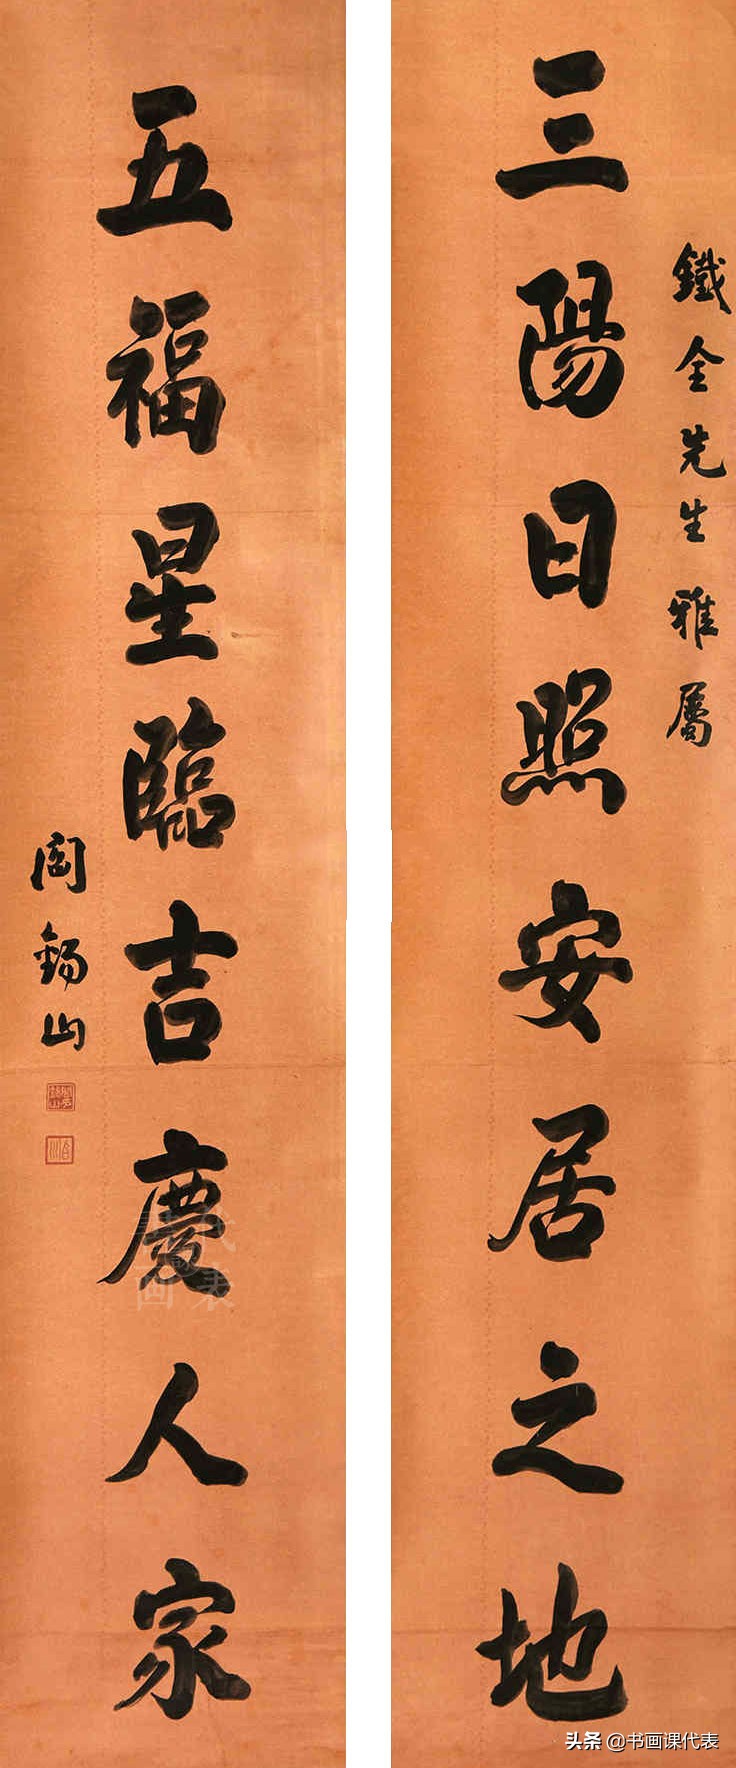 鐵全先生雅屬
三陽日照安居之地
五福星臨吉慶人家
閻錫山
头条 @书画课代表